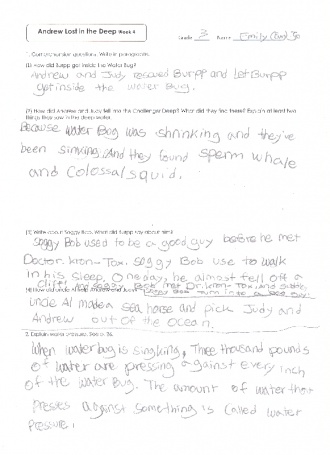 Andrew Lost in the Deep Week 4
Grade 3 Name Emily
1. Comprehension questions. Write in paragraphs.
(1) How did Burpp get inside the Water Bug?
Andrew and Judy rescued Burpp and Let Burpp
get inside the water bug.
(2) How did Andrew and Judy fall into the Challenger Deep? What did they find there? Explain at least two
things they saw in the deep water.
Because water Bug was shrinking and they've
been sinking. And they found sperm whale
and colossal squid.
(3) Write about Soggy Bob. What did Burpp say about him?
Soggy Bob used to be a good guy before he met
Doctor. Kron-Tox. soggy Bob use to walk
in his sleep. One day, he almost fell off a
cliff and soggy Bob met Dr. Kron-Tox and
(4) How did Uncle Al help Andrew and Judy?
uncle Al made a sea horse and pick Judy and
Andrew out of the ocean.
2. Explain water pressure.
When water bug is singking, Three thousand pounds
of water are pressing against every inch
of the water Bug. The amount of water that
presses against something is called water
pressure.